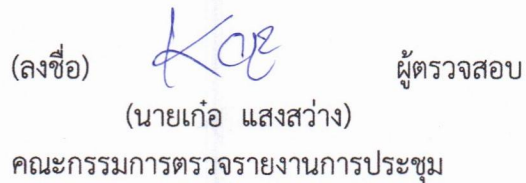 (ลงชื่อ) ผู้ตรวจสอบ
(นายเก๋อ แสงสว่าง)
คณะกรรมการตรวจรายงานการประชุม